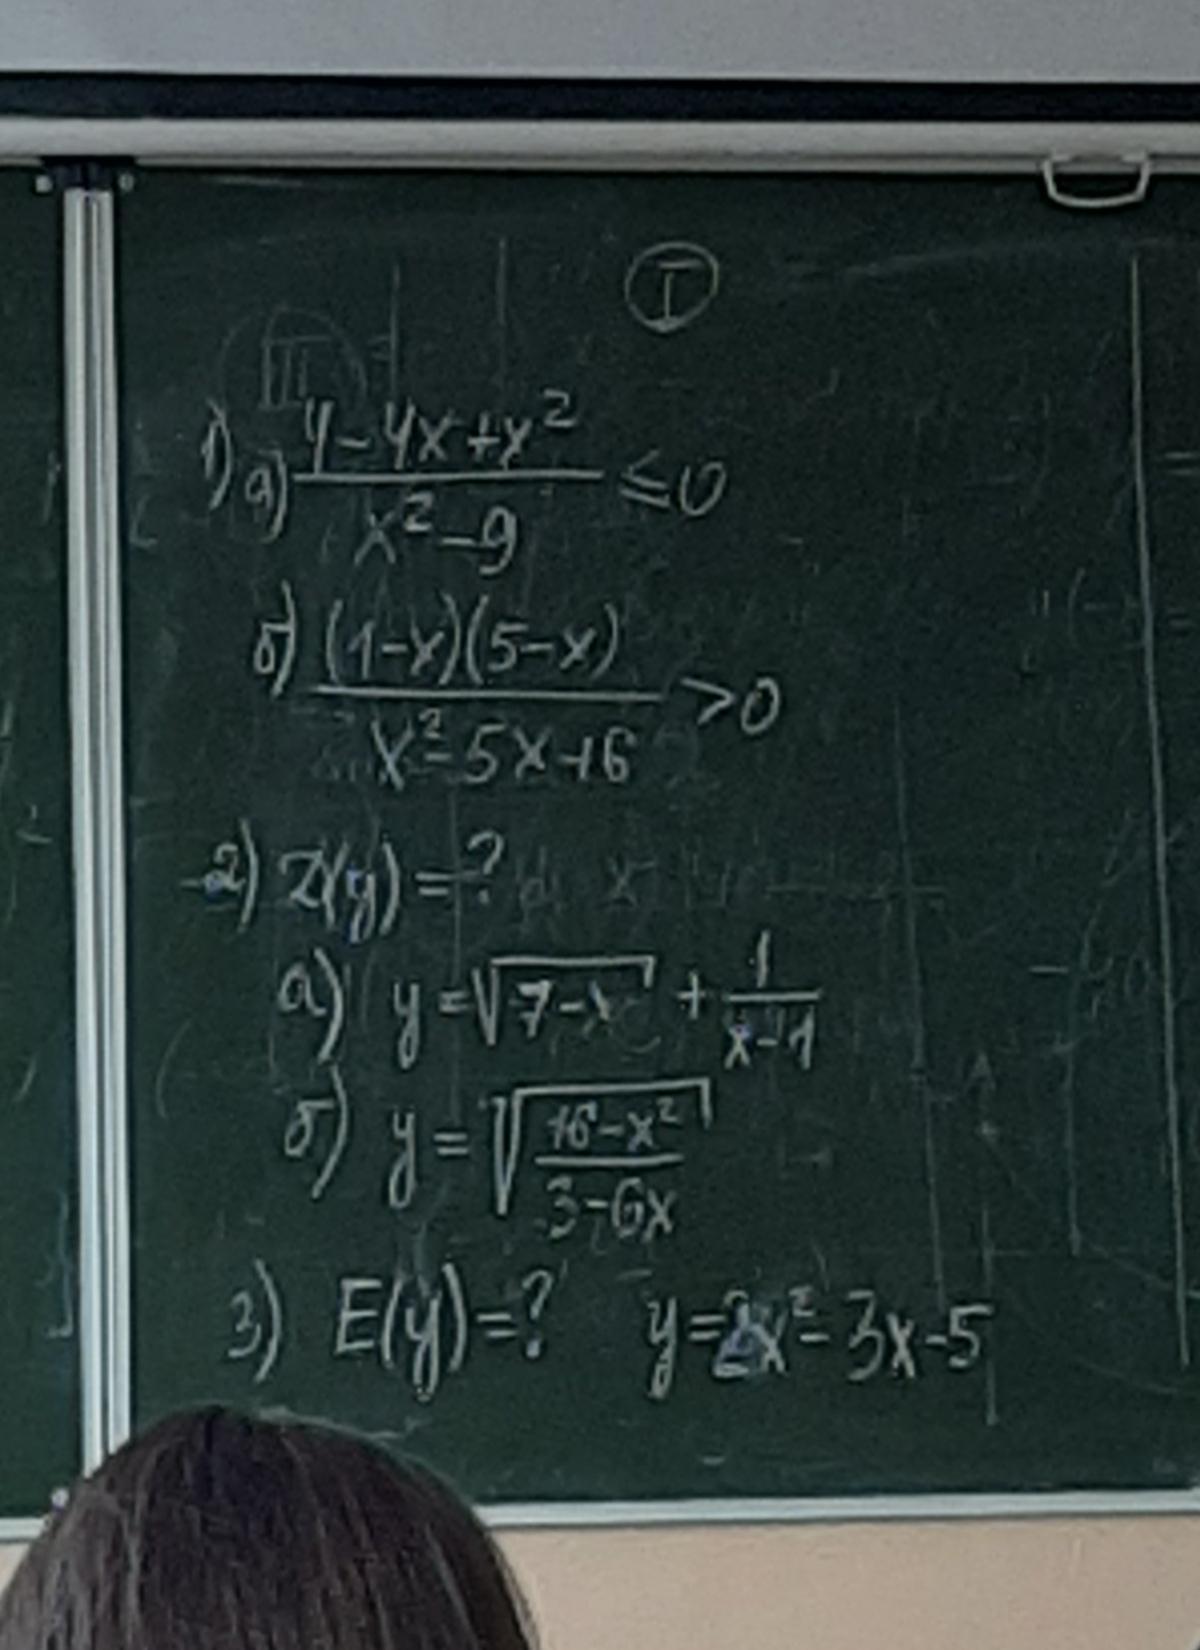 I
III
1) a) (4-4x+x²)/(x²-9) ≤ 0
б) ((1-x)(5-x))/(x²-5x+6) > 0
2) D(y)=?
a) y=√(7-x) + 1/(x-1)
б) y=√((16-x²)/(3-6x))
3) E(y)=? y=2x²-3x-5